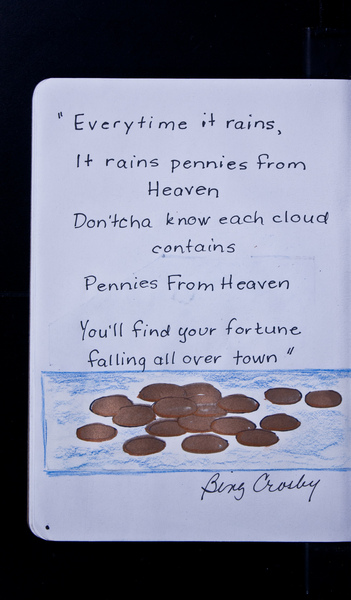 " Everytime it rains,
It rains pennies from
Heaven
Don'tcha know each cloud
contains
Pennies From Heaven
You'll find your fortune
falling all over town "
Bing Crosby